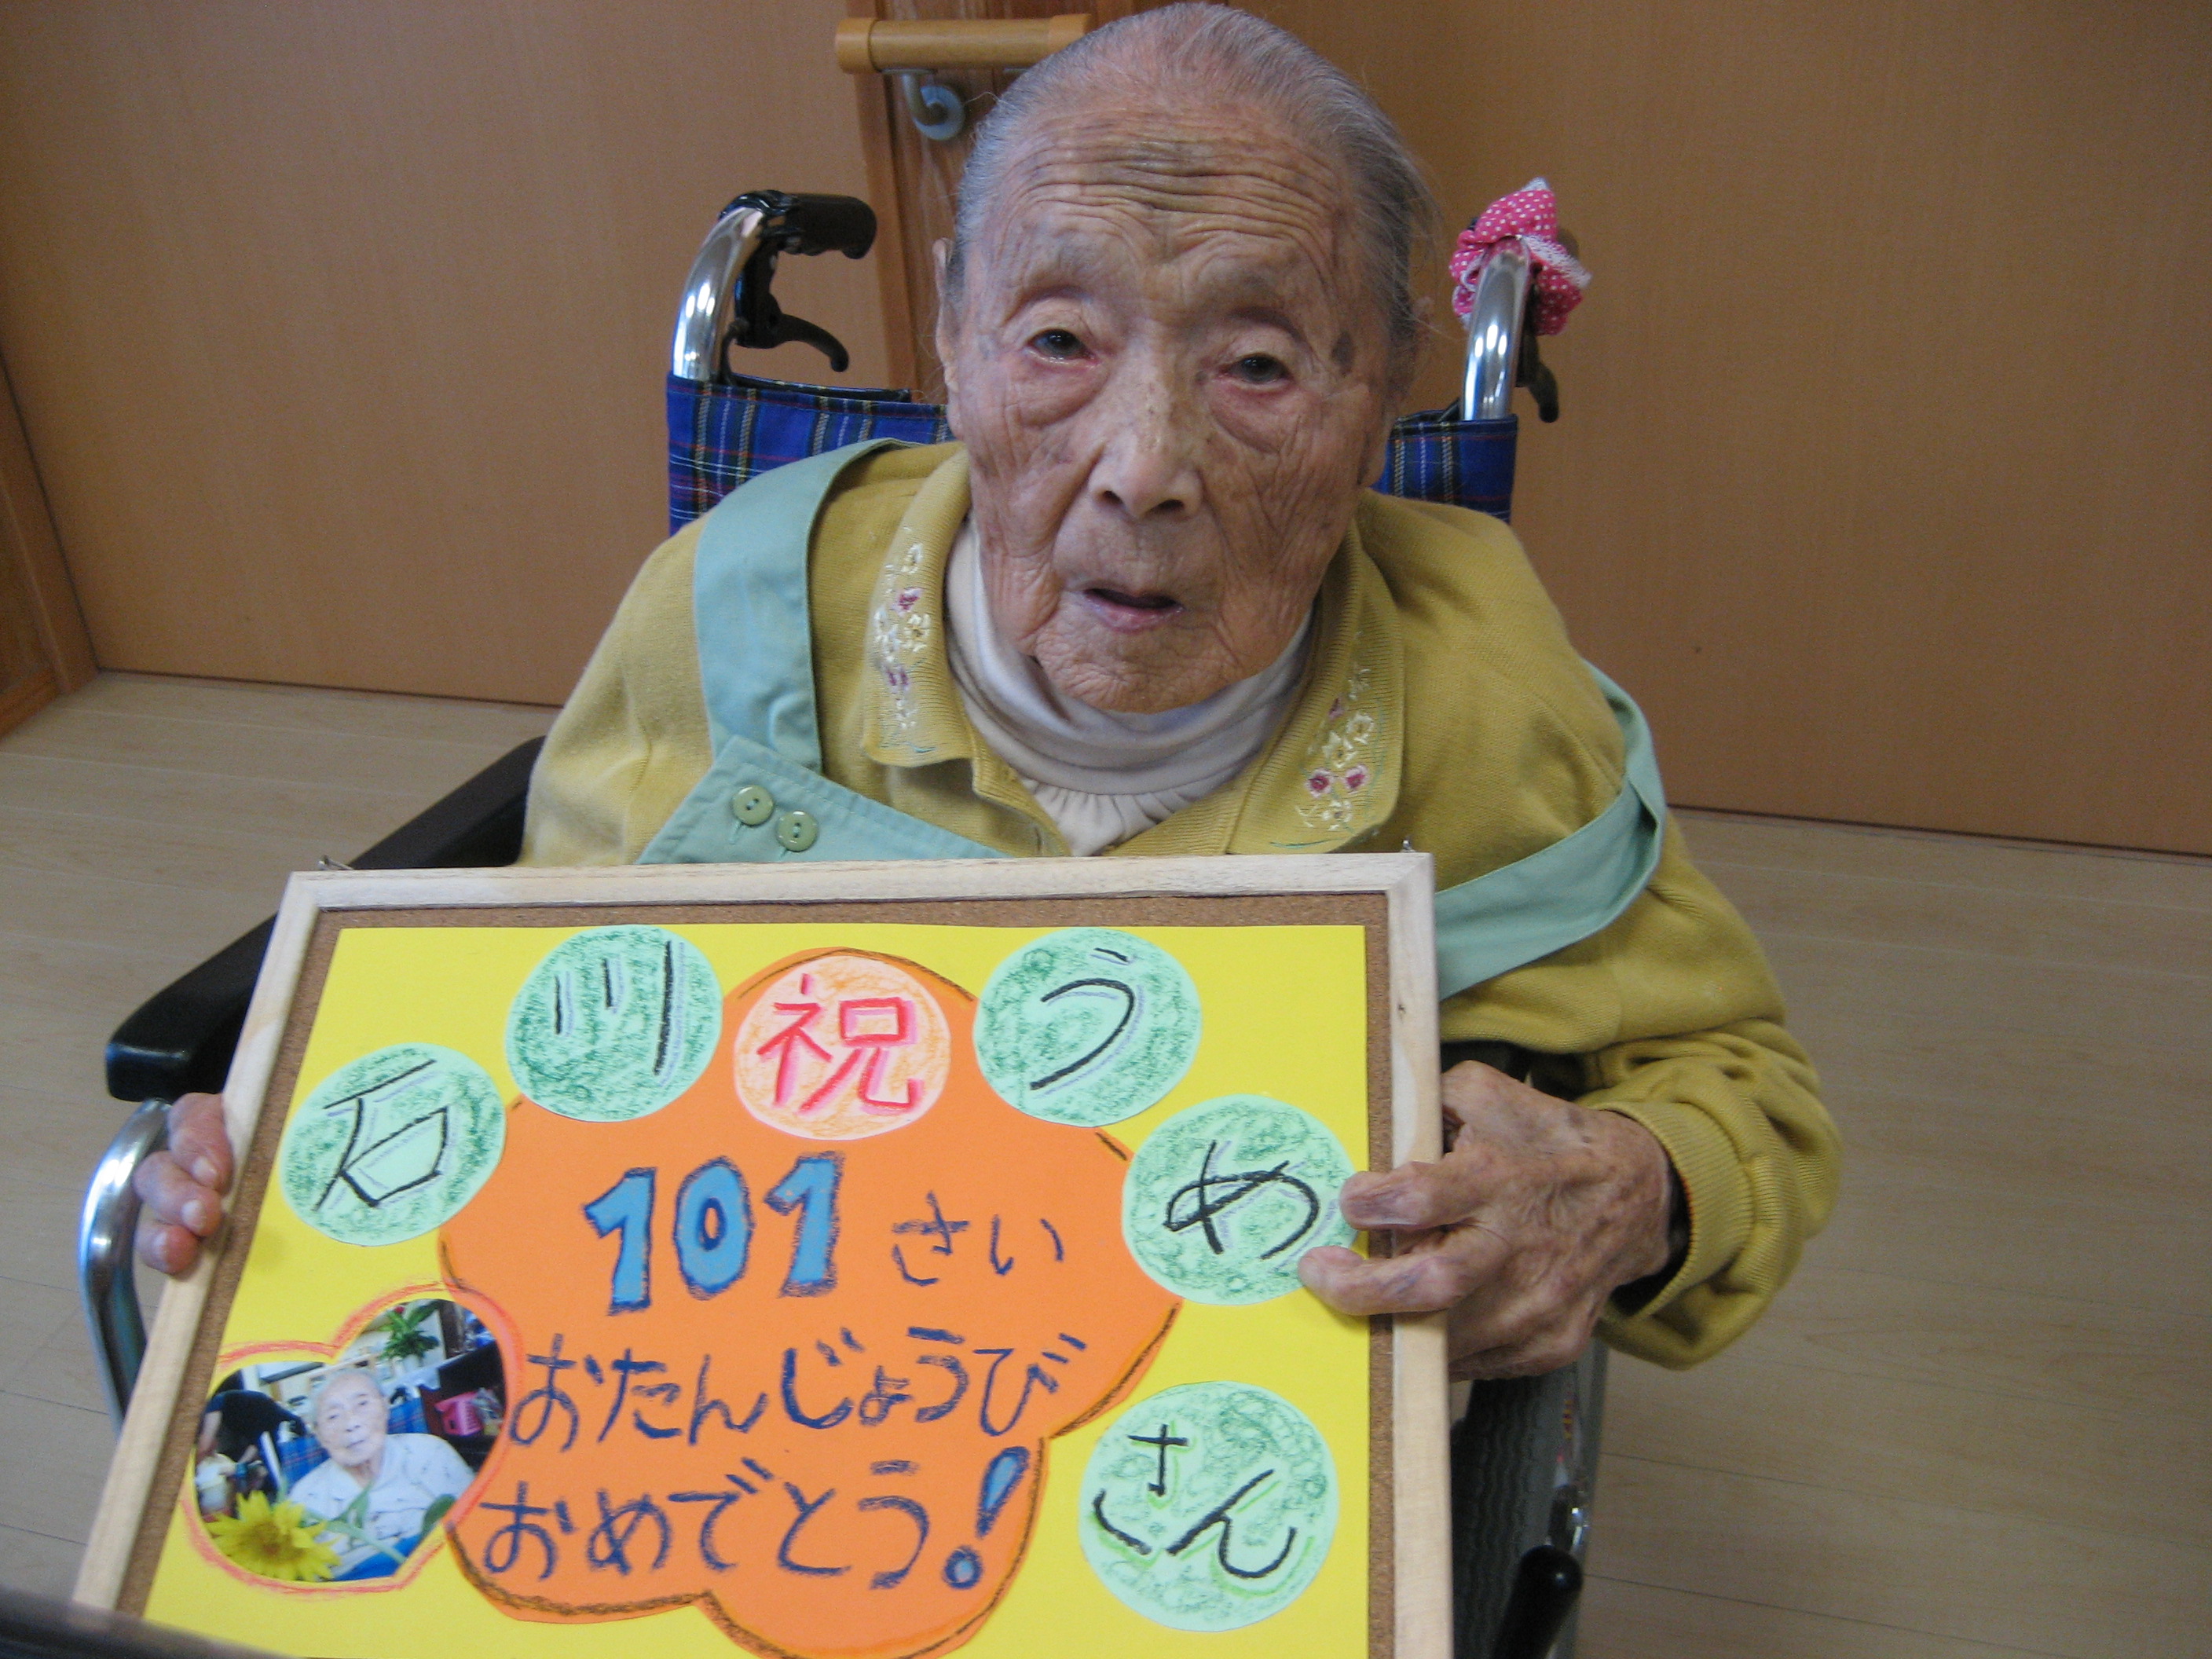 石川
祝
うめ
さん
101さい
おたんじょうび
おめでとう!